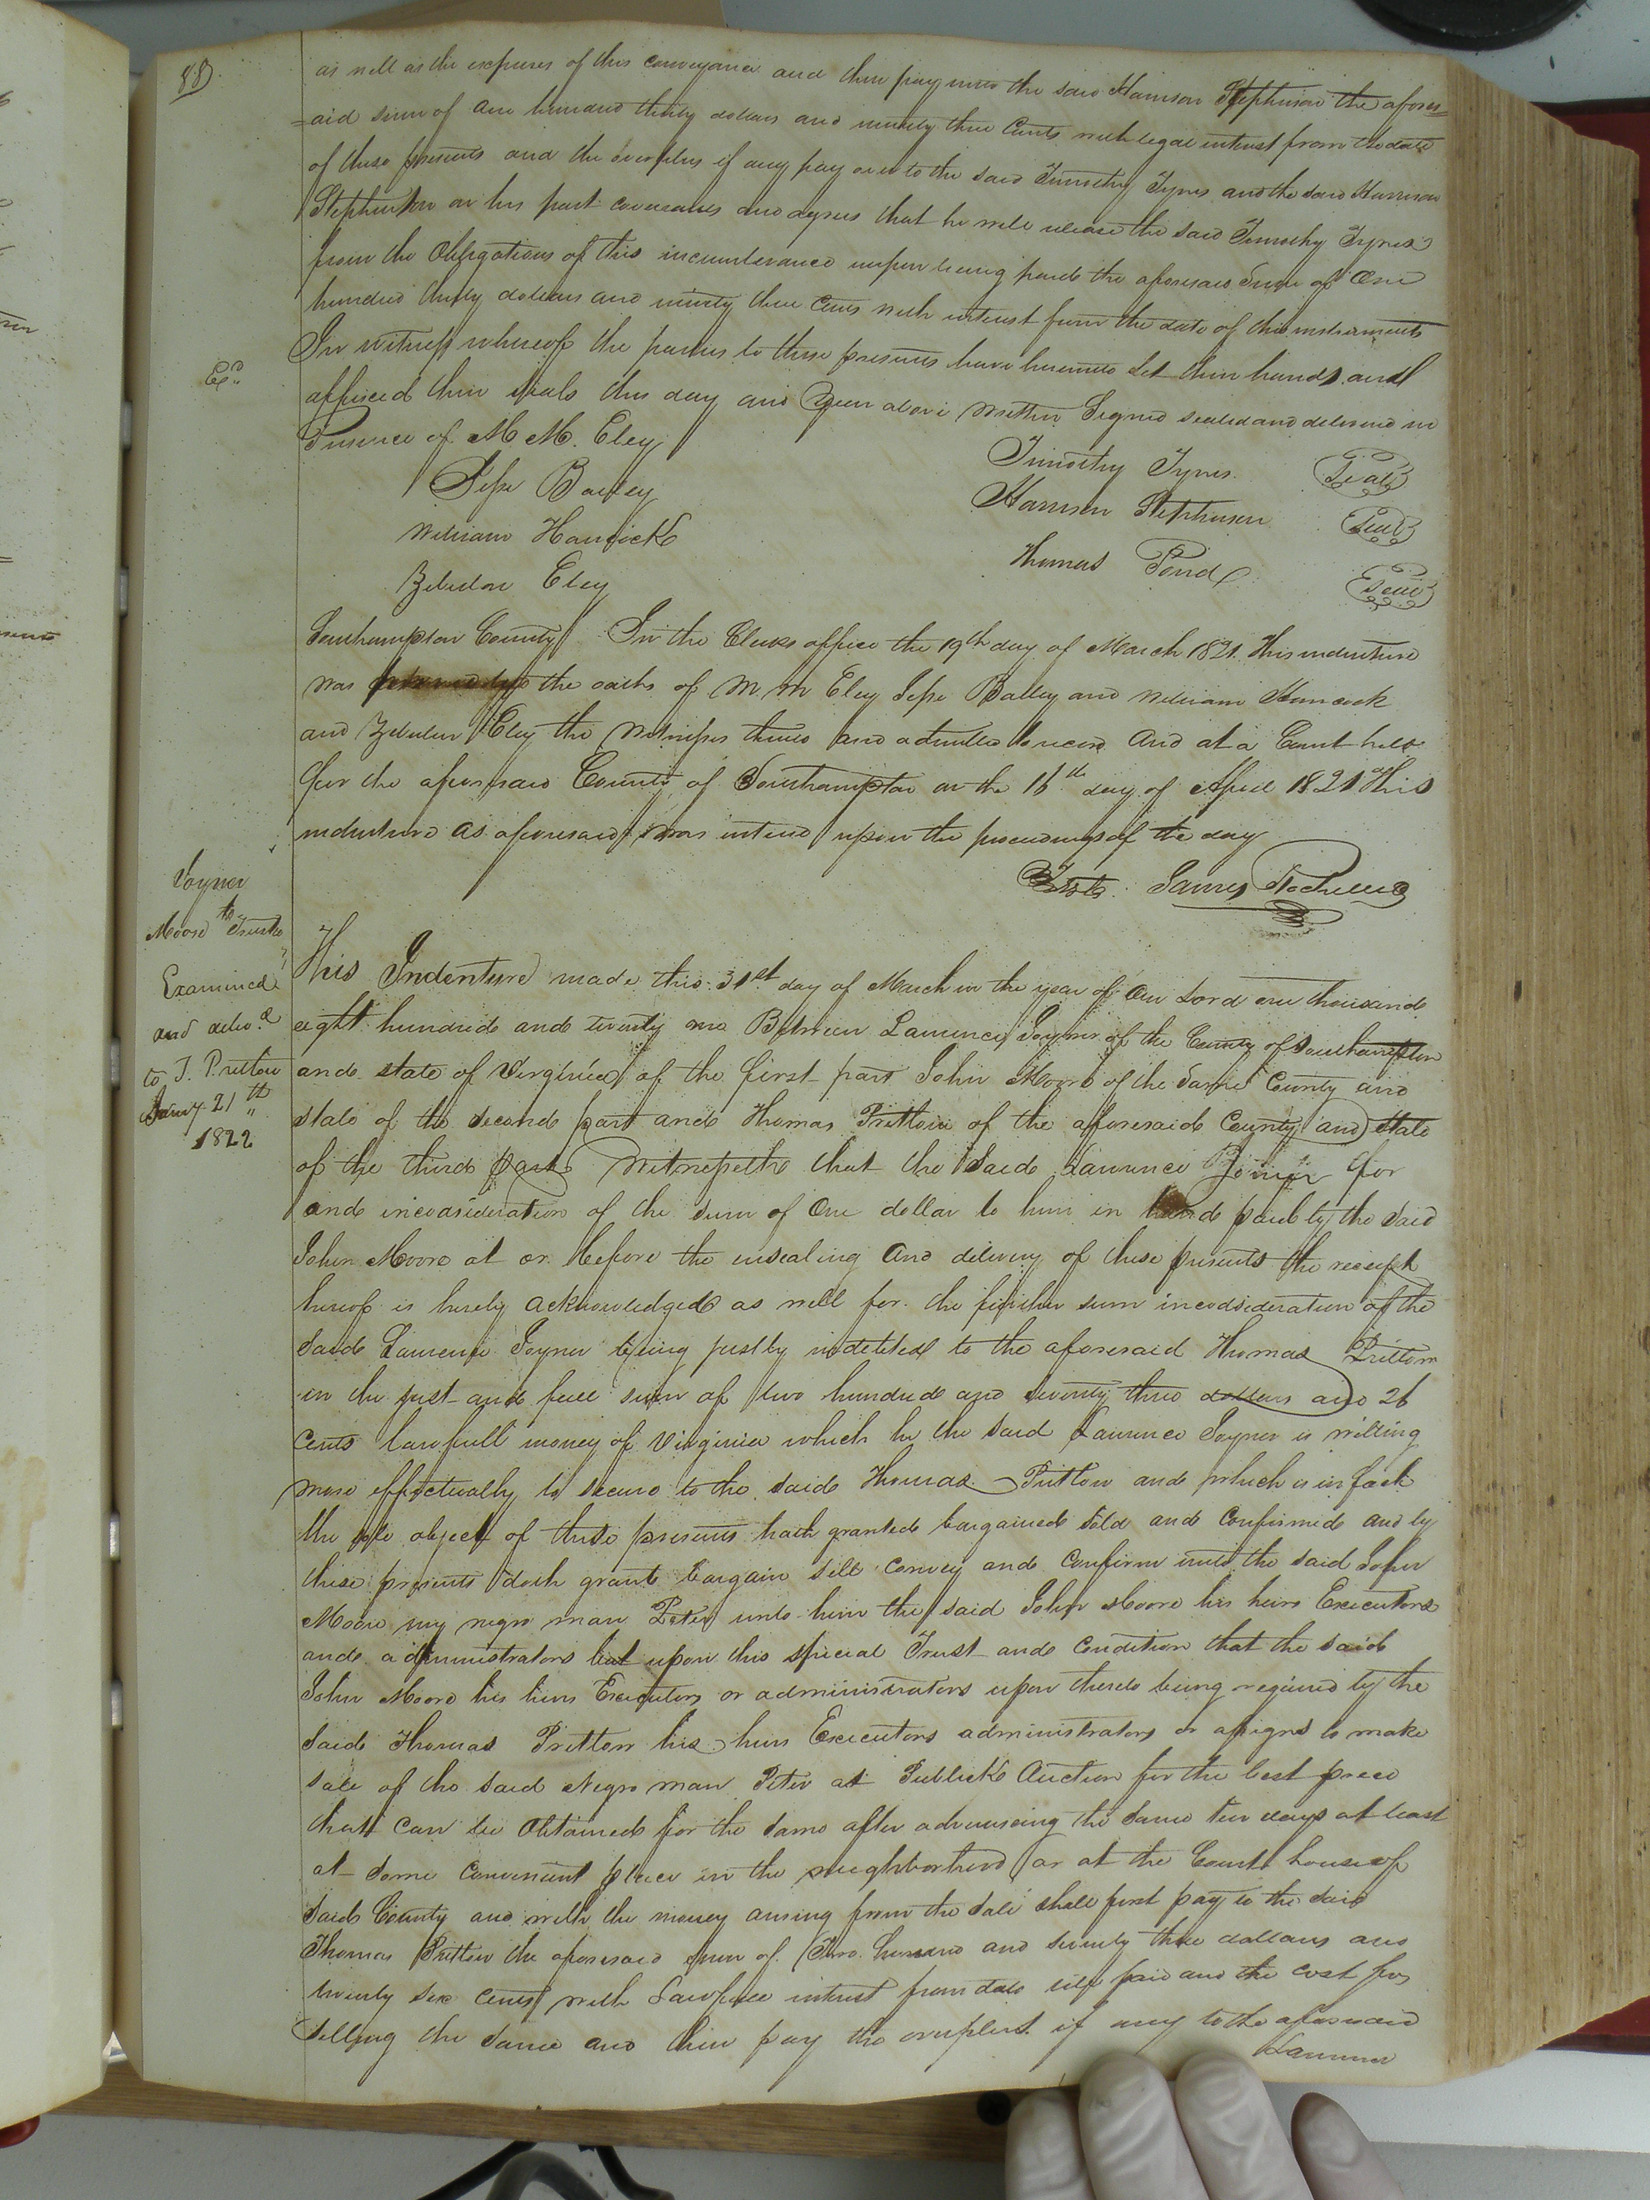 88
as well as the expences of this conveyance and then pay unto the said Harrison Stephenson the afores=
=aid sum of one hundred thirty dollars and ninety three Cents with legal interest from the date
of these presents and the overplus if any pay over to the said Timothy Tynes and the said Harrison
Stephenson on his part covenants and agrees that he will release the said Timothy Tynes
from the Obligations of this incumberance uppon being paid the aforesaid Sum of One
hundred thirty dollars and ninety three Cents with interest from the date of this instruments
In witness whereof the parties to these presents have hereunto Set their hands and
Exd
affixed their seals this day and year above written Signed sealed and delivered in
Presence of M M. Eley
Timothy Tynes Seal
Jesse Bailey
Harrison Stephenson Seal
William Hancock
Thomas Pond Seal
Zebulon Eley
Southampton County In the Clerks office the 19th day of March 1821. This indenture
was the oaths of M M Eley Jesse Bailey and William Hancock
and Zebulon Eley the Witnesses thereto and admitted to record And at a Court held
for the aforesaid County of Southampton on the 16th day of April 1821 This
indenture as aforesaid was entered upon the proceedings of the day
Teste. James Rochelle
Joyner
to
Moore Trustee
Examined
and delivd
to T. Pretlow
Jany. 21th
1822
This Indenture made this 31st day of March in the year of our Lord one thousand
eight hundred and twenty one Between Lawrence Joyner of the County of Southampton
and state of Virginia of the first part John Moore of the same County and
state of the second part and Thomas Prettow of the aforesaid County and state
of the third part Witnesseth that the said Lawrence Joiner for
and inconsideration of the sum of One dollar to him in hand paid by the said
John Moore at or before the ensealing and delivery of these presents the receipt
hereof is hereby acknowledged as well for the further sum inconsideration of the
said Lawrence Joyner being justly indebted to the aforesaid Thomas Prittow
in the just and full sum of two hundred and seventy three dollars and 26
Cents lawfull money of Virginia which he the said Lawrence Joyner is willing
more effectually to secure to the said Thomas Prittow and which is in fact
the sole object of these presents hath granted bargained sold and Confirmed and by
these presents doth grant bargain sell convey and confirm unto the said John
Moore my negro man Peter unto him the said John Moore his heirs Executors
and administrators but upon this special Trust and Condition that the said
John Moore his heirs Executors or administrators upon thereto being required by the
said Thomas Prittow his heirs Executors administrators or assigns to make
sale of the said Negro man Peter at Publick Auction for the best price
that can be Obtained for the same after advertising the same ten days at least
at some convenient place in the neighborhood or at the Court house of
said County and with the money arising from the sale shall first pay to the said
Thomas Prittow the aforesaid sum of Two hundred and seventy three dollars and
twenty six cents with Lawfull interest from date till paid and the cost for
selling the same and then pay the overplus if any to the aforesaid
Lawrence